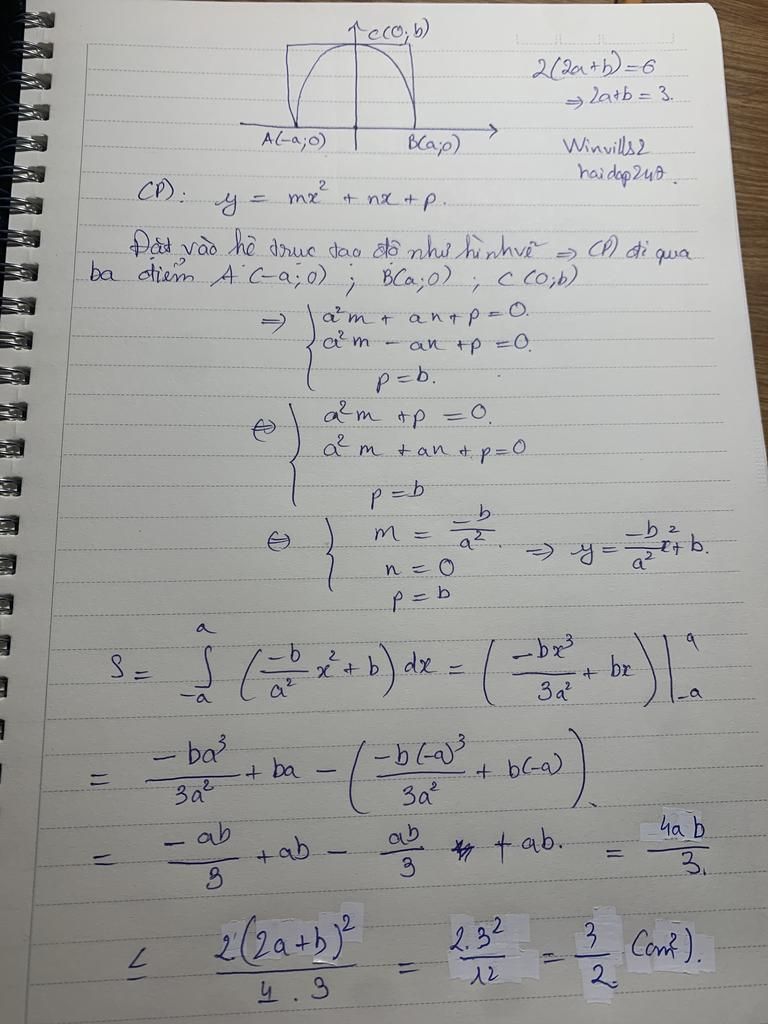 C(0;b)
2(2a+b)=6
⇒ 2a+b = 3.
A(-a;0) B(a;0)
Winvills2
haidap247.
(P): y = mx² + nx + p.
Đặt vào hệ trục tọa độ như hình vẽ ⇒ (P) đi qua
ba điểm A(-a;0) ; B(a;0) ; C(0;b)
⇒ { a²m + an + p = 0.
a²m - an + p = 0.
p = b.
⇔ { a²m + p = 0.
a²m + an + p = 0
p = b
⇔ { m = -b/a² ⇒ y = -b/a² x² + b.
n = 0
p = b
S = ∫_{-a}^{a} (-b/a² x² + b) dx = (-bx³/3a² + bx) |_{-a}^{a}
= -ba³/3a² + ba - (-b(-a)³/3a² + b(-a))
= -ab/3 + ab - ab/3 + ab. = 4ab/3.
≤ 2(2a+b)²/4.3 = 2.3²/12 = 3/2 (cm²).